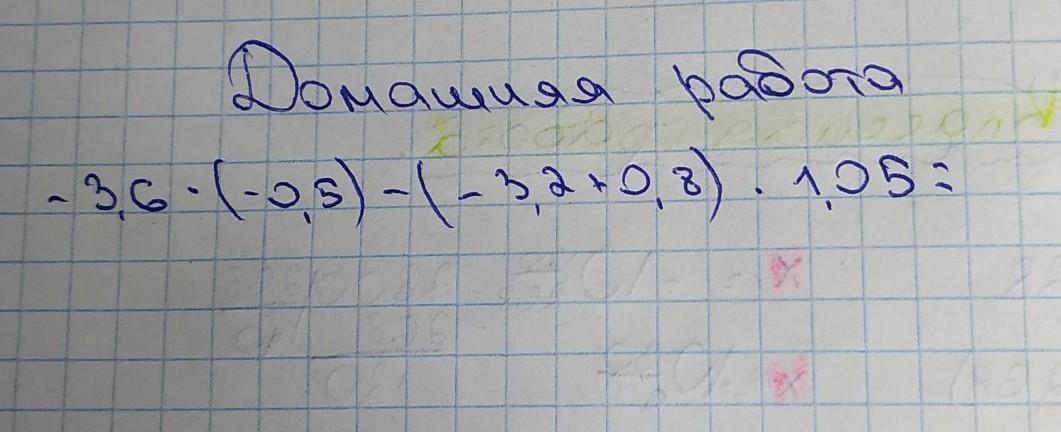 Домашняя работа
-3,6 · (-0,5) - (-3,2+0,8) · 1,05=